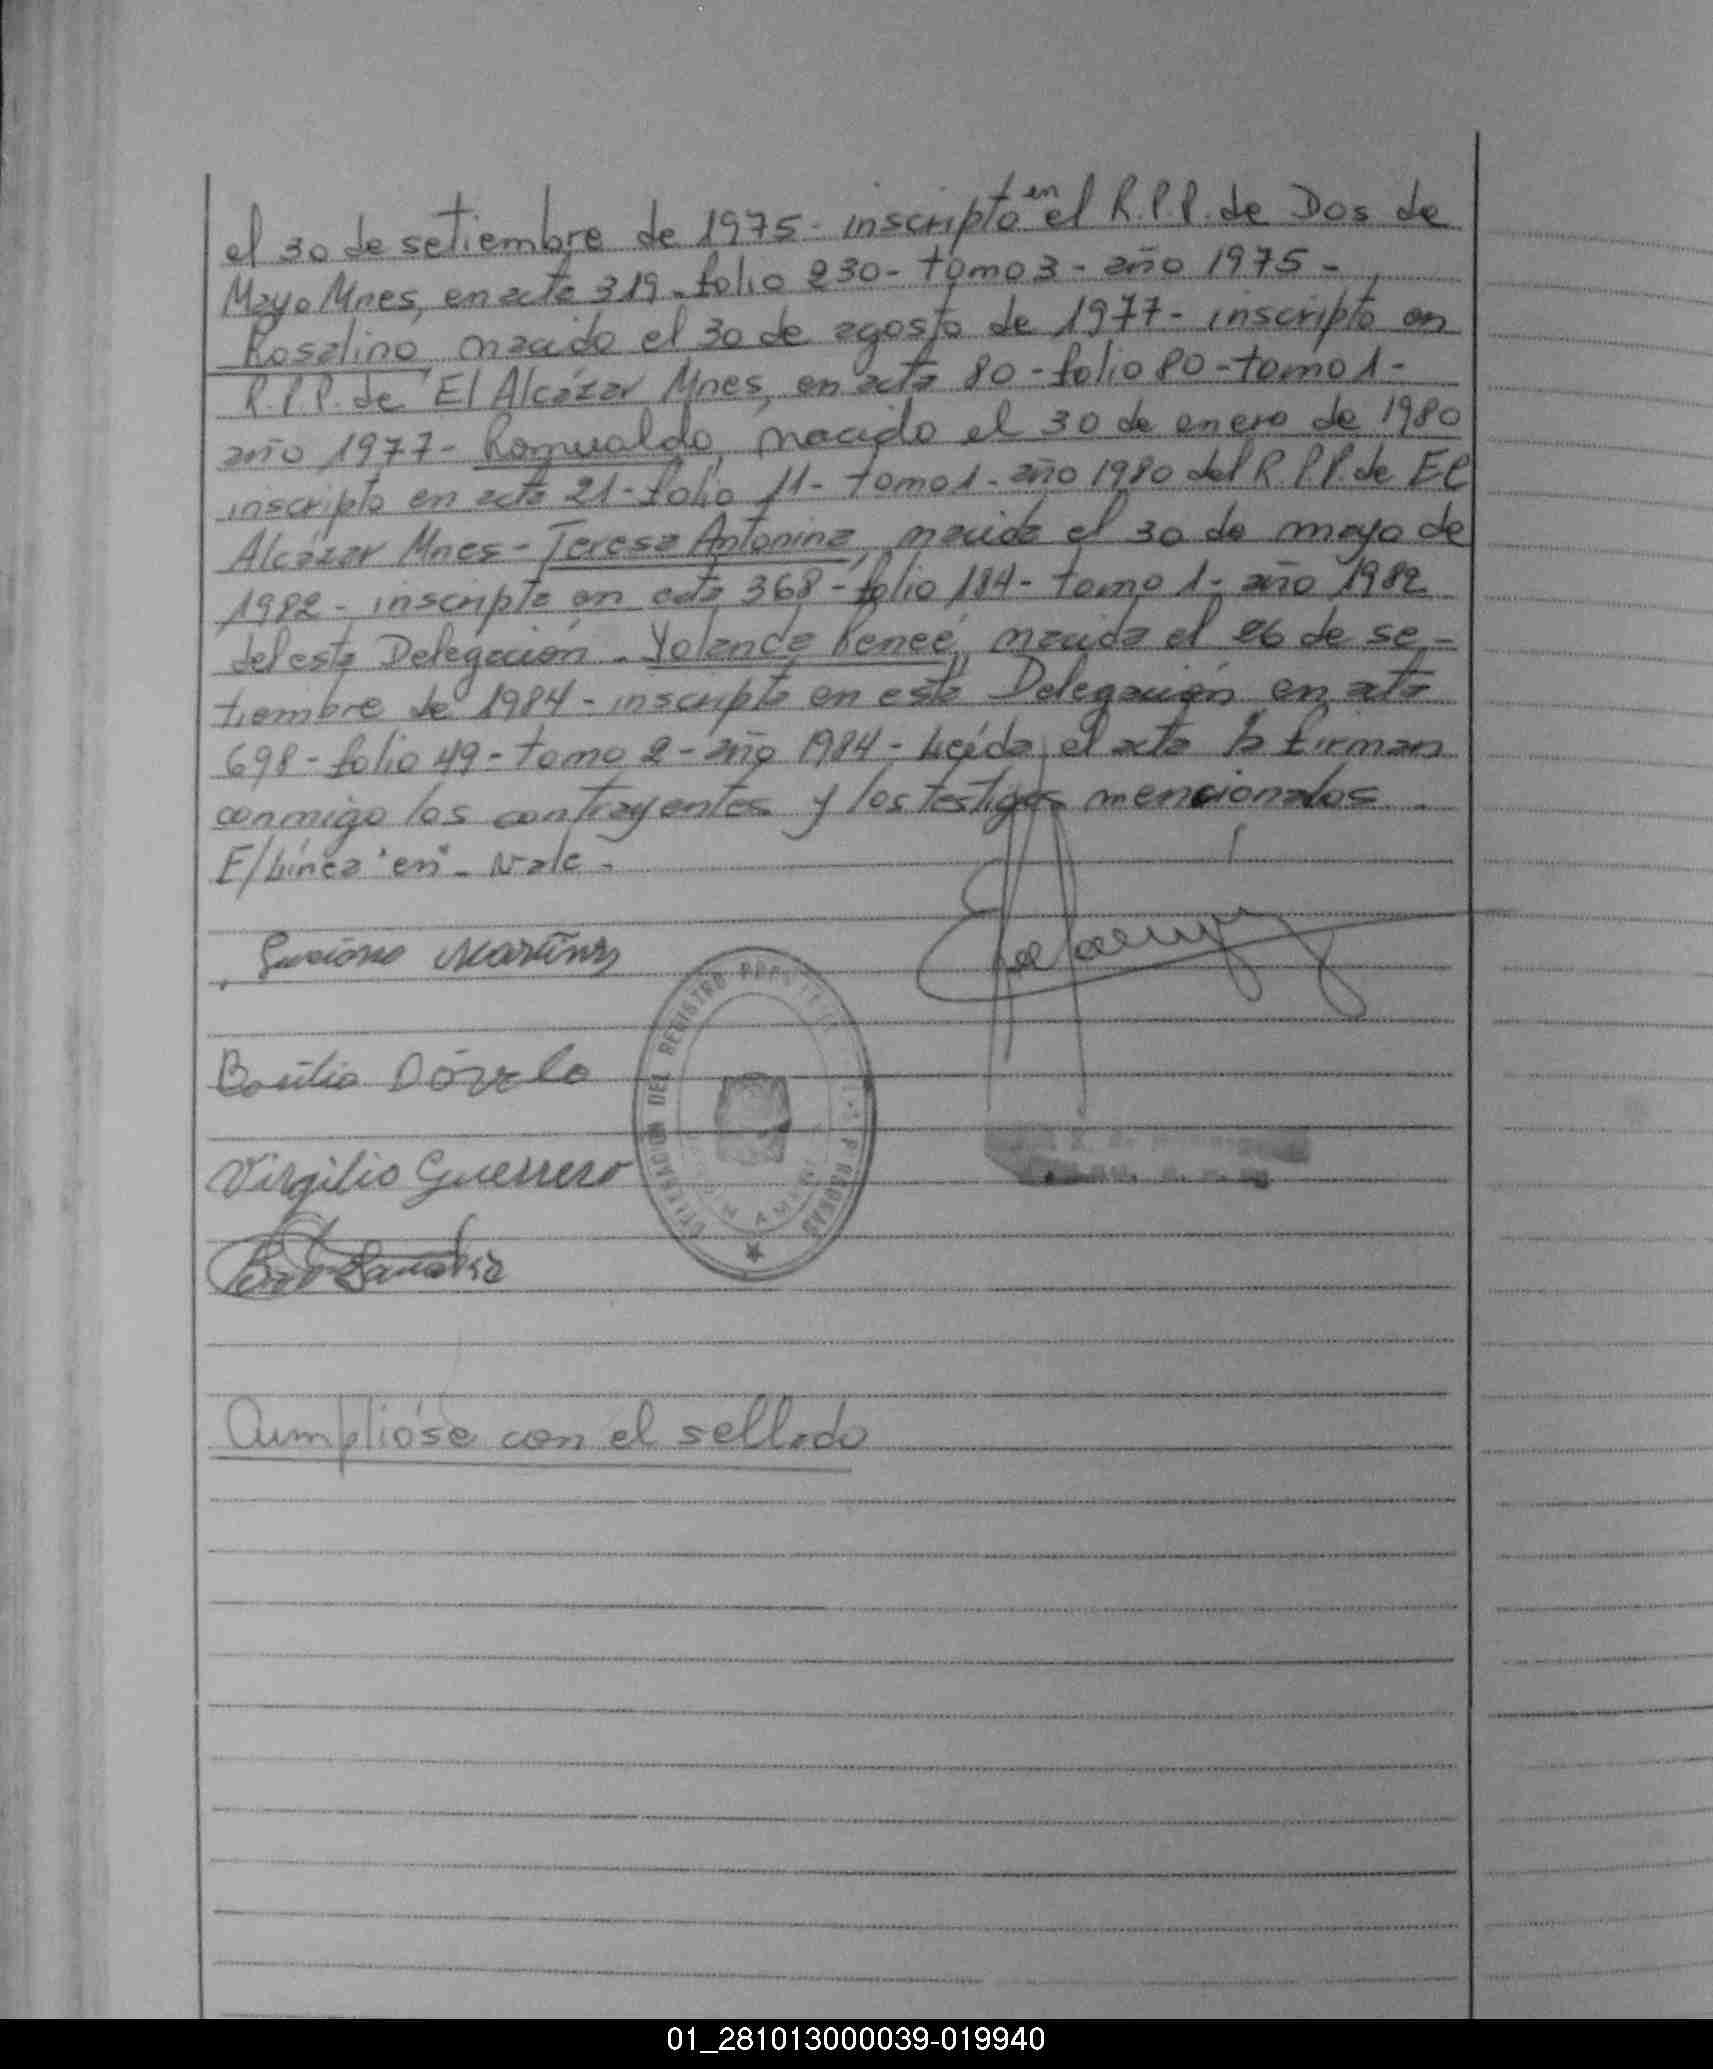 el 30 de setiembre de 1975- inscripto en el R.P.P. de Dos de
Mayo Mnes, en acta 319- folio 230- tomo 3- año 1975-
Rosalino, nacido el 30 de agosto de 1977- inscripto en
R.P.P. de El Alcázar Mnes, en acta 80- folio 80- tomo 1-
año 1977- Romualdo, nacido el 30 de enero de 1980
inscripto en acta 21- folio 11- tomo 1- año 1980 del R.P.P. de El
Alcázar Mnes- Teresa Antonina, nacida el 30 de mayo de
1982- inscripta en acta 368- folio 184- tomo 1- año 1982
del esta Delegación- Yolanda Reneé, nacida el 26 de se-
tiembre de 1984- inscripta en esta Delegación en acta
698- folio 49- tomo 2- año 1984- Leída el acta la firman
conmigo los contrayentes y los testigos mencionados
E/Línea "en"- vale-
Martinez
Basilio Dávalo
Virgilio Guerrero
DELEGACION DEL REGISTRO
Cumplióse con el sellado
01_281013000039-019940